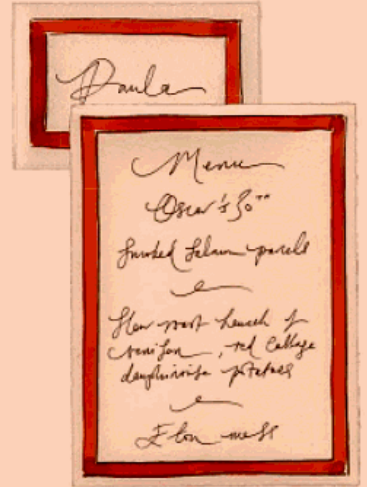 Paula
Menu
Oscar's 30th
Smoked Salmon parcels
Slow roast haunch of
venison, red Cabbage
dauphinoise potatoes
Eton mess